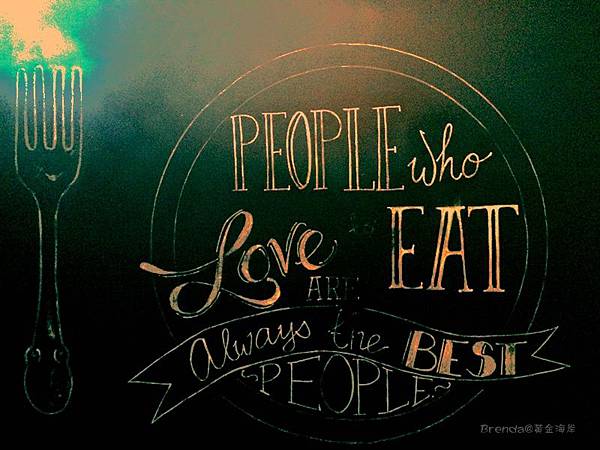 PEOPLE who
Love to EAT
ARE
Always the BEST
PEOPLE
Brenda@黃金海岸